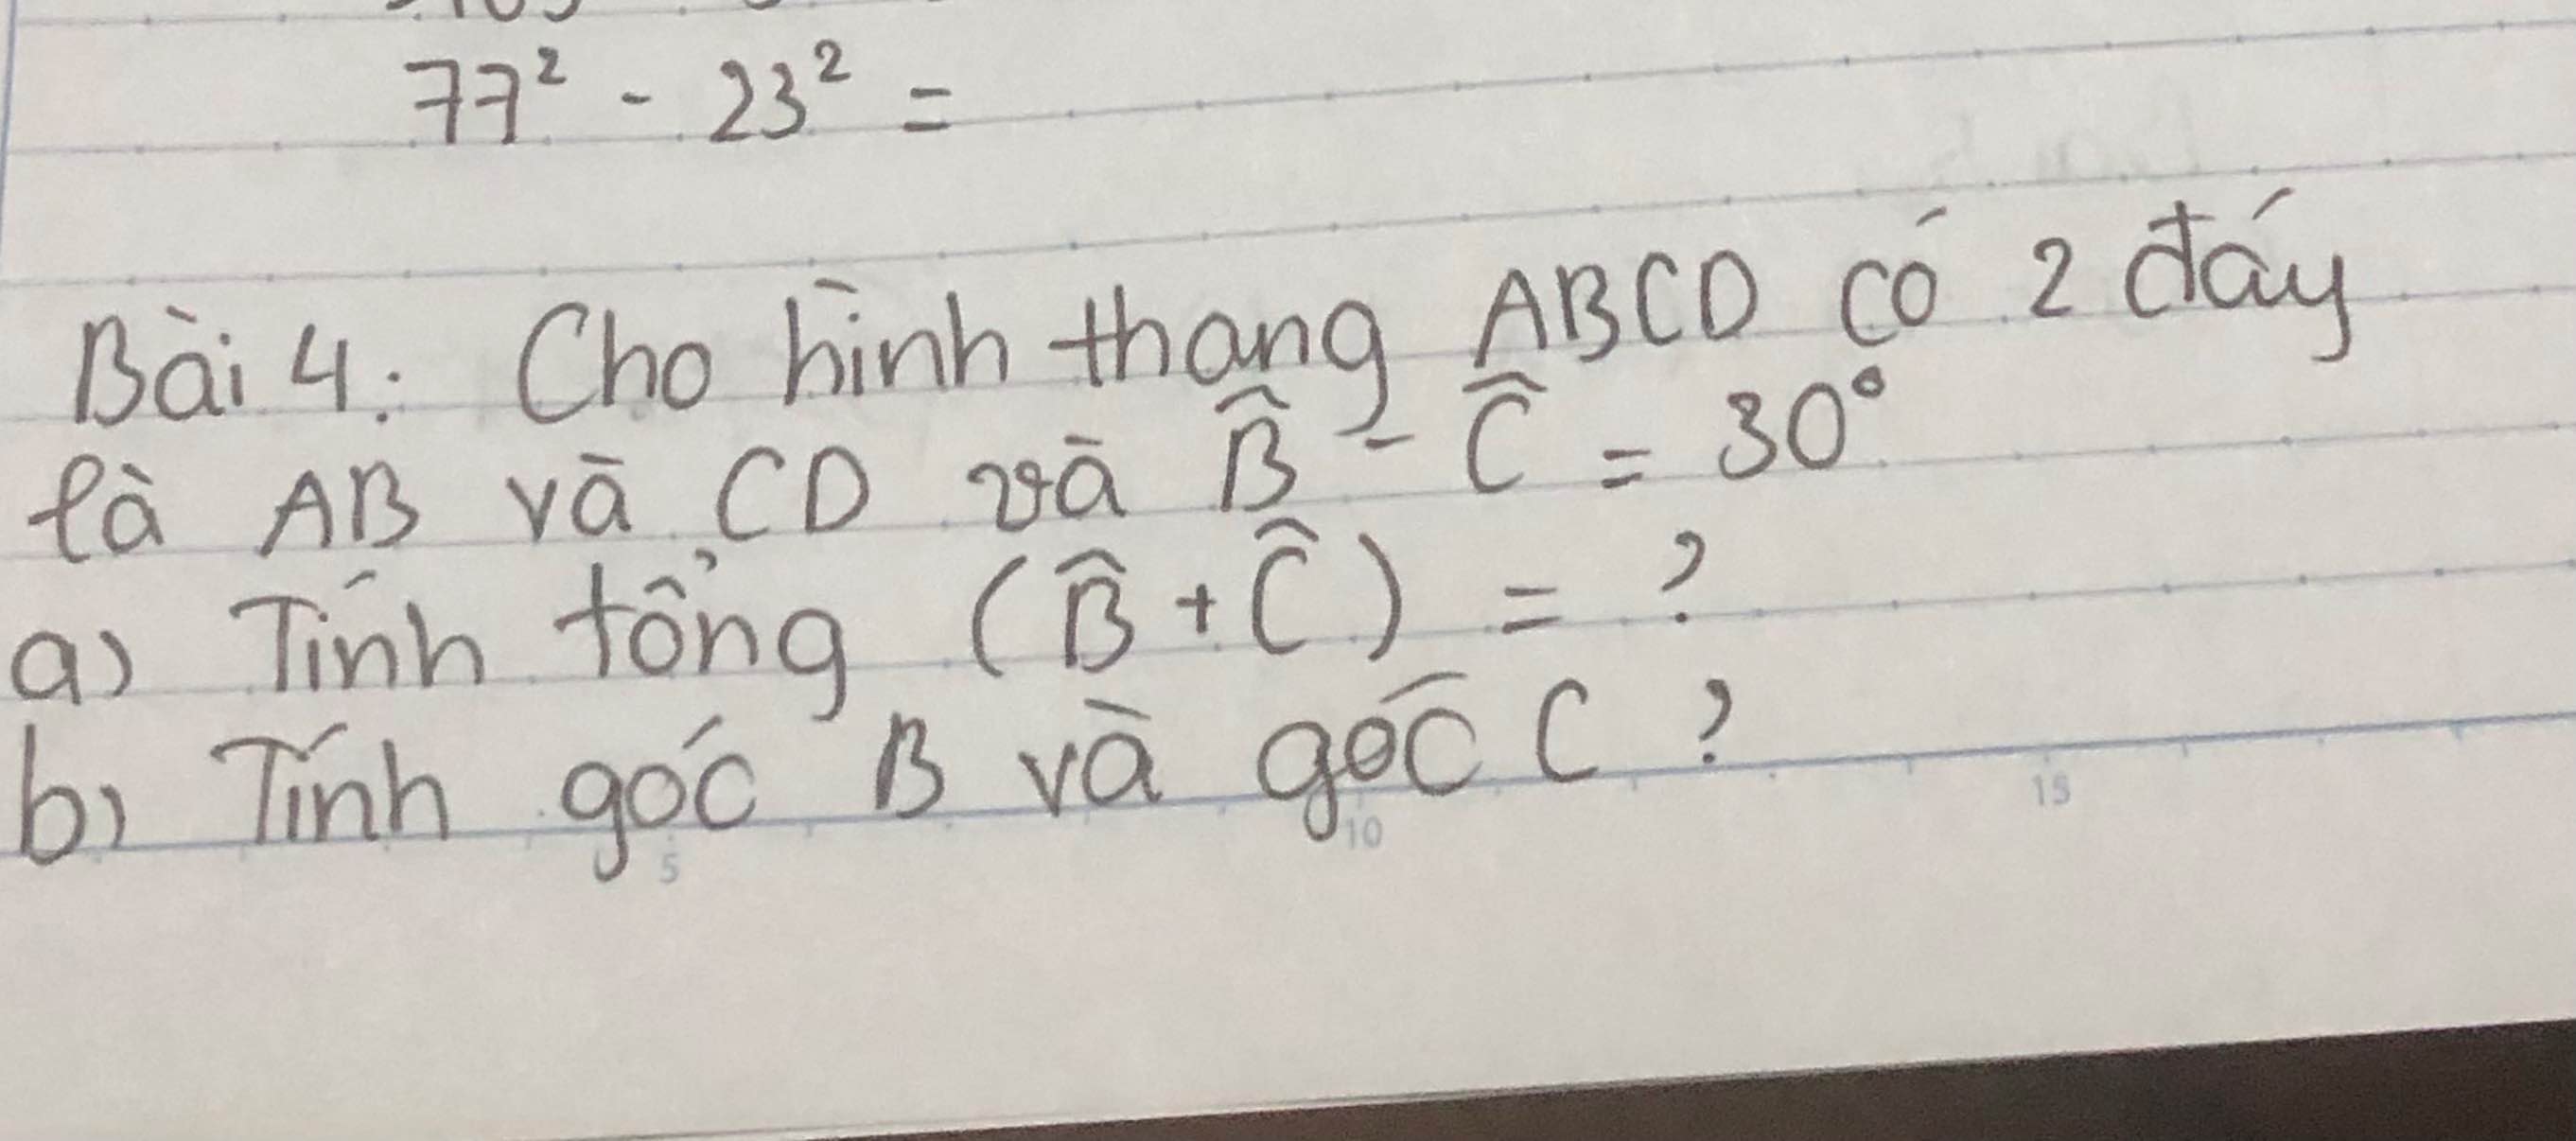 77² - 23² =
Bài 4: Cho hình thang ABCD có 2 đáy
là AB và CD và B̂ - Ĉ = 30°
a) Tính tổng (B̂ + Ĉ) = ?
b) Tính góc B và góc C ?
5 10 15